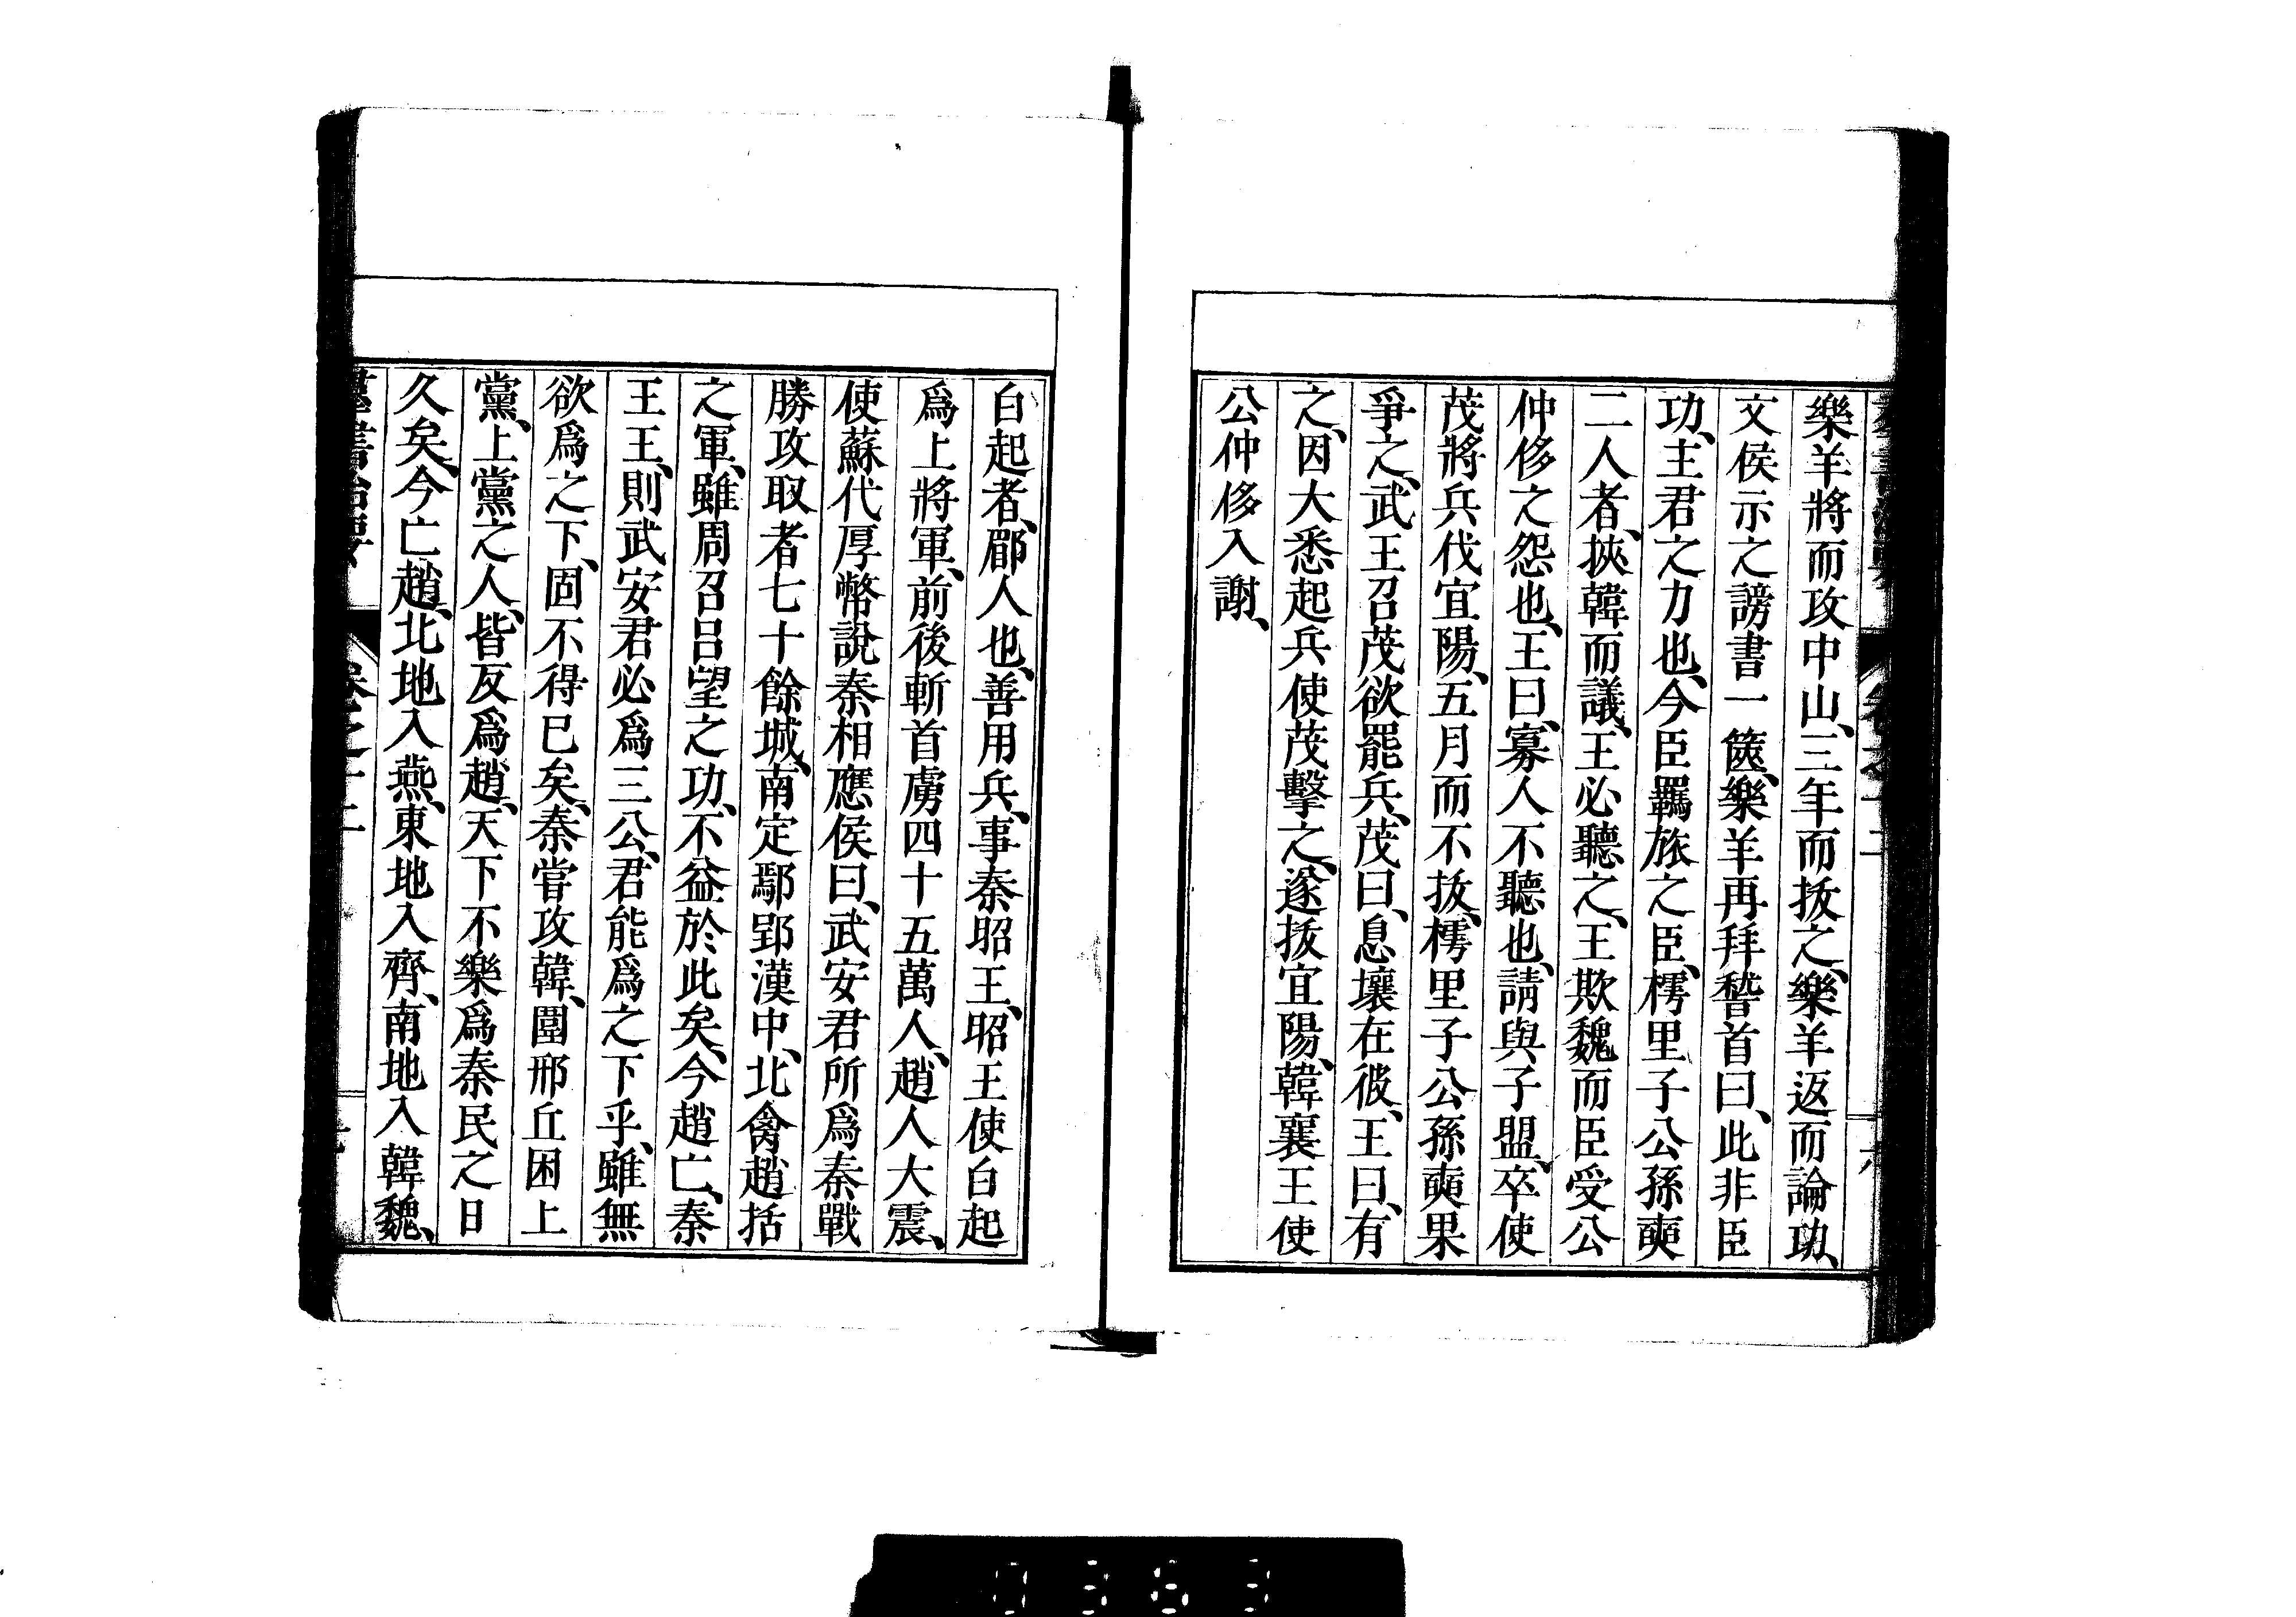 樂羊將而攻中山、三年而拔之、樂羊返而論功、
文侯示之謗書一篋、樂羊再拜稽首曰、此非臣
功、主君之力也、今臣羈旅之臣、樗里子公孫奭
二人者、挾韓而議、王必聽之、王欺魏而臣受公
仲侈之怨也、王曰、寡人不聽也、請與子盟、卒使
茂將兵伐宜陽、五月而不拔、樗里子公孫奭果
爭之、武王召茂欲罷兵、茂曰、息壤在彼、王曰、有
之、因大悉起兵使茂擊之、遂拔宜陽、韓襄王使
公仲侈入謝、
白起者、郿人也、善用兵、事秦昭王、昭王使白起
爲上將軍、前後斬首虜四十五萬人、趙人大震、
使蘇代厚幣說秦相應侯曰、武安君所爲秦戰
勝攻取者七十餘城、南定鄢郢漢中、北禽趙括
之軍、雖周召呂望之功、不益於此矣、今趙亡、秦
王王、則武安君必爲三公、君能爲之下乎、雖無
欲爲之下、固不得已矣、秦嘗攻韓、圍邢丘困上
黨、上黨之人、皆反爲趙、天下不樂爲秦民之日
久矣、今亡趙、北地入燕、東地入齊、南地入韓魏、
羣書治要 卷之十二